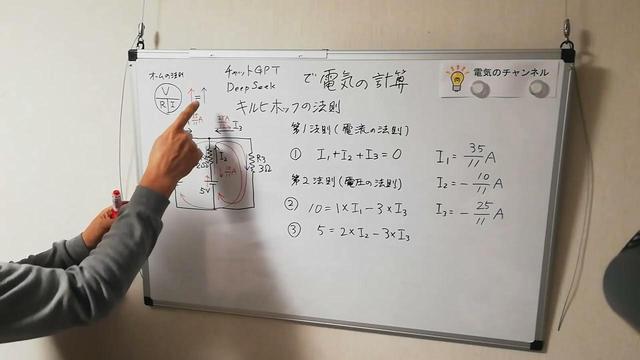 オームの法則
V
R I
=
チャットGPT
DeepSeek
で電気の計算
電気のチャンネル
キルヒホッフの法則
I₃
I₂
5V
R₃
3Ω
第1法則(電流の法則)
① I₁+I₂+I₃=0
第2法則(電圧の法則)
② 10=1×I₁-3×I₃
③ 5=2×I₂-3×I₃
I₁=35/11A
I₂=-10/11A
I₃=-25/11A